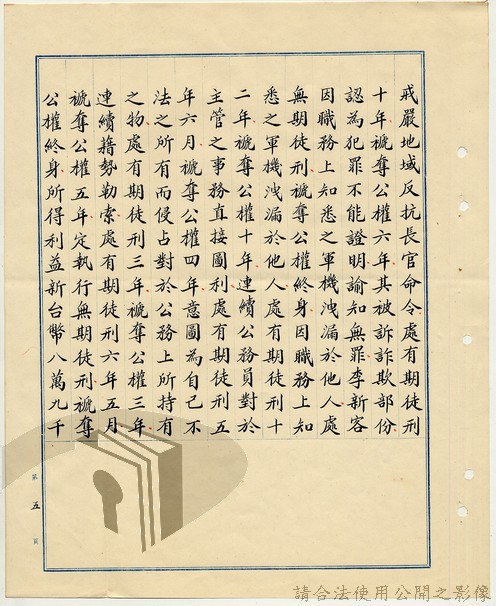 戒嚴地域反抗長官命令處有期徒刑
十年褫奪公權六年其被訴詐欺部份
認為犯罪不能證明諭知無罪李新容
因職務上知悉之軍機洩漏於他人處
無期徒刑褫奪公權終身因職務上知
悉之軍機洩漏於他人處有期徒刑十
二年褫奪公權十年連續公務員對於
主管之事務直接圖利處有期徒刑五
年六月褫奪公權四年意圖為自己不
法之所有而侵占對於公務上所持有
之物處有期徒刑三年褫奪公權三年
連續藉勢勒索處有期徒刑六年五月
褫奪公權五年定執行無期徒刑褫奪
公權終身所得利益新台幣八萬九千
第五頁
請合法使用公開之影像